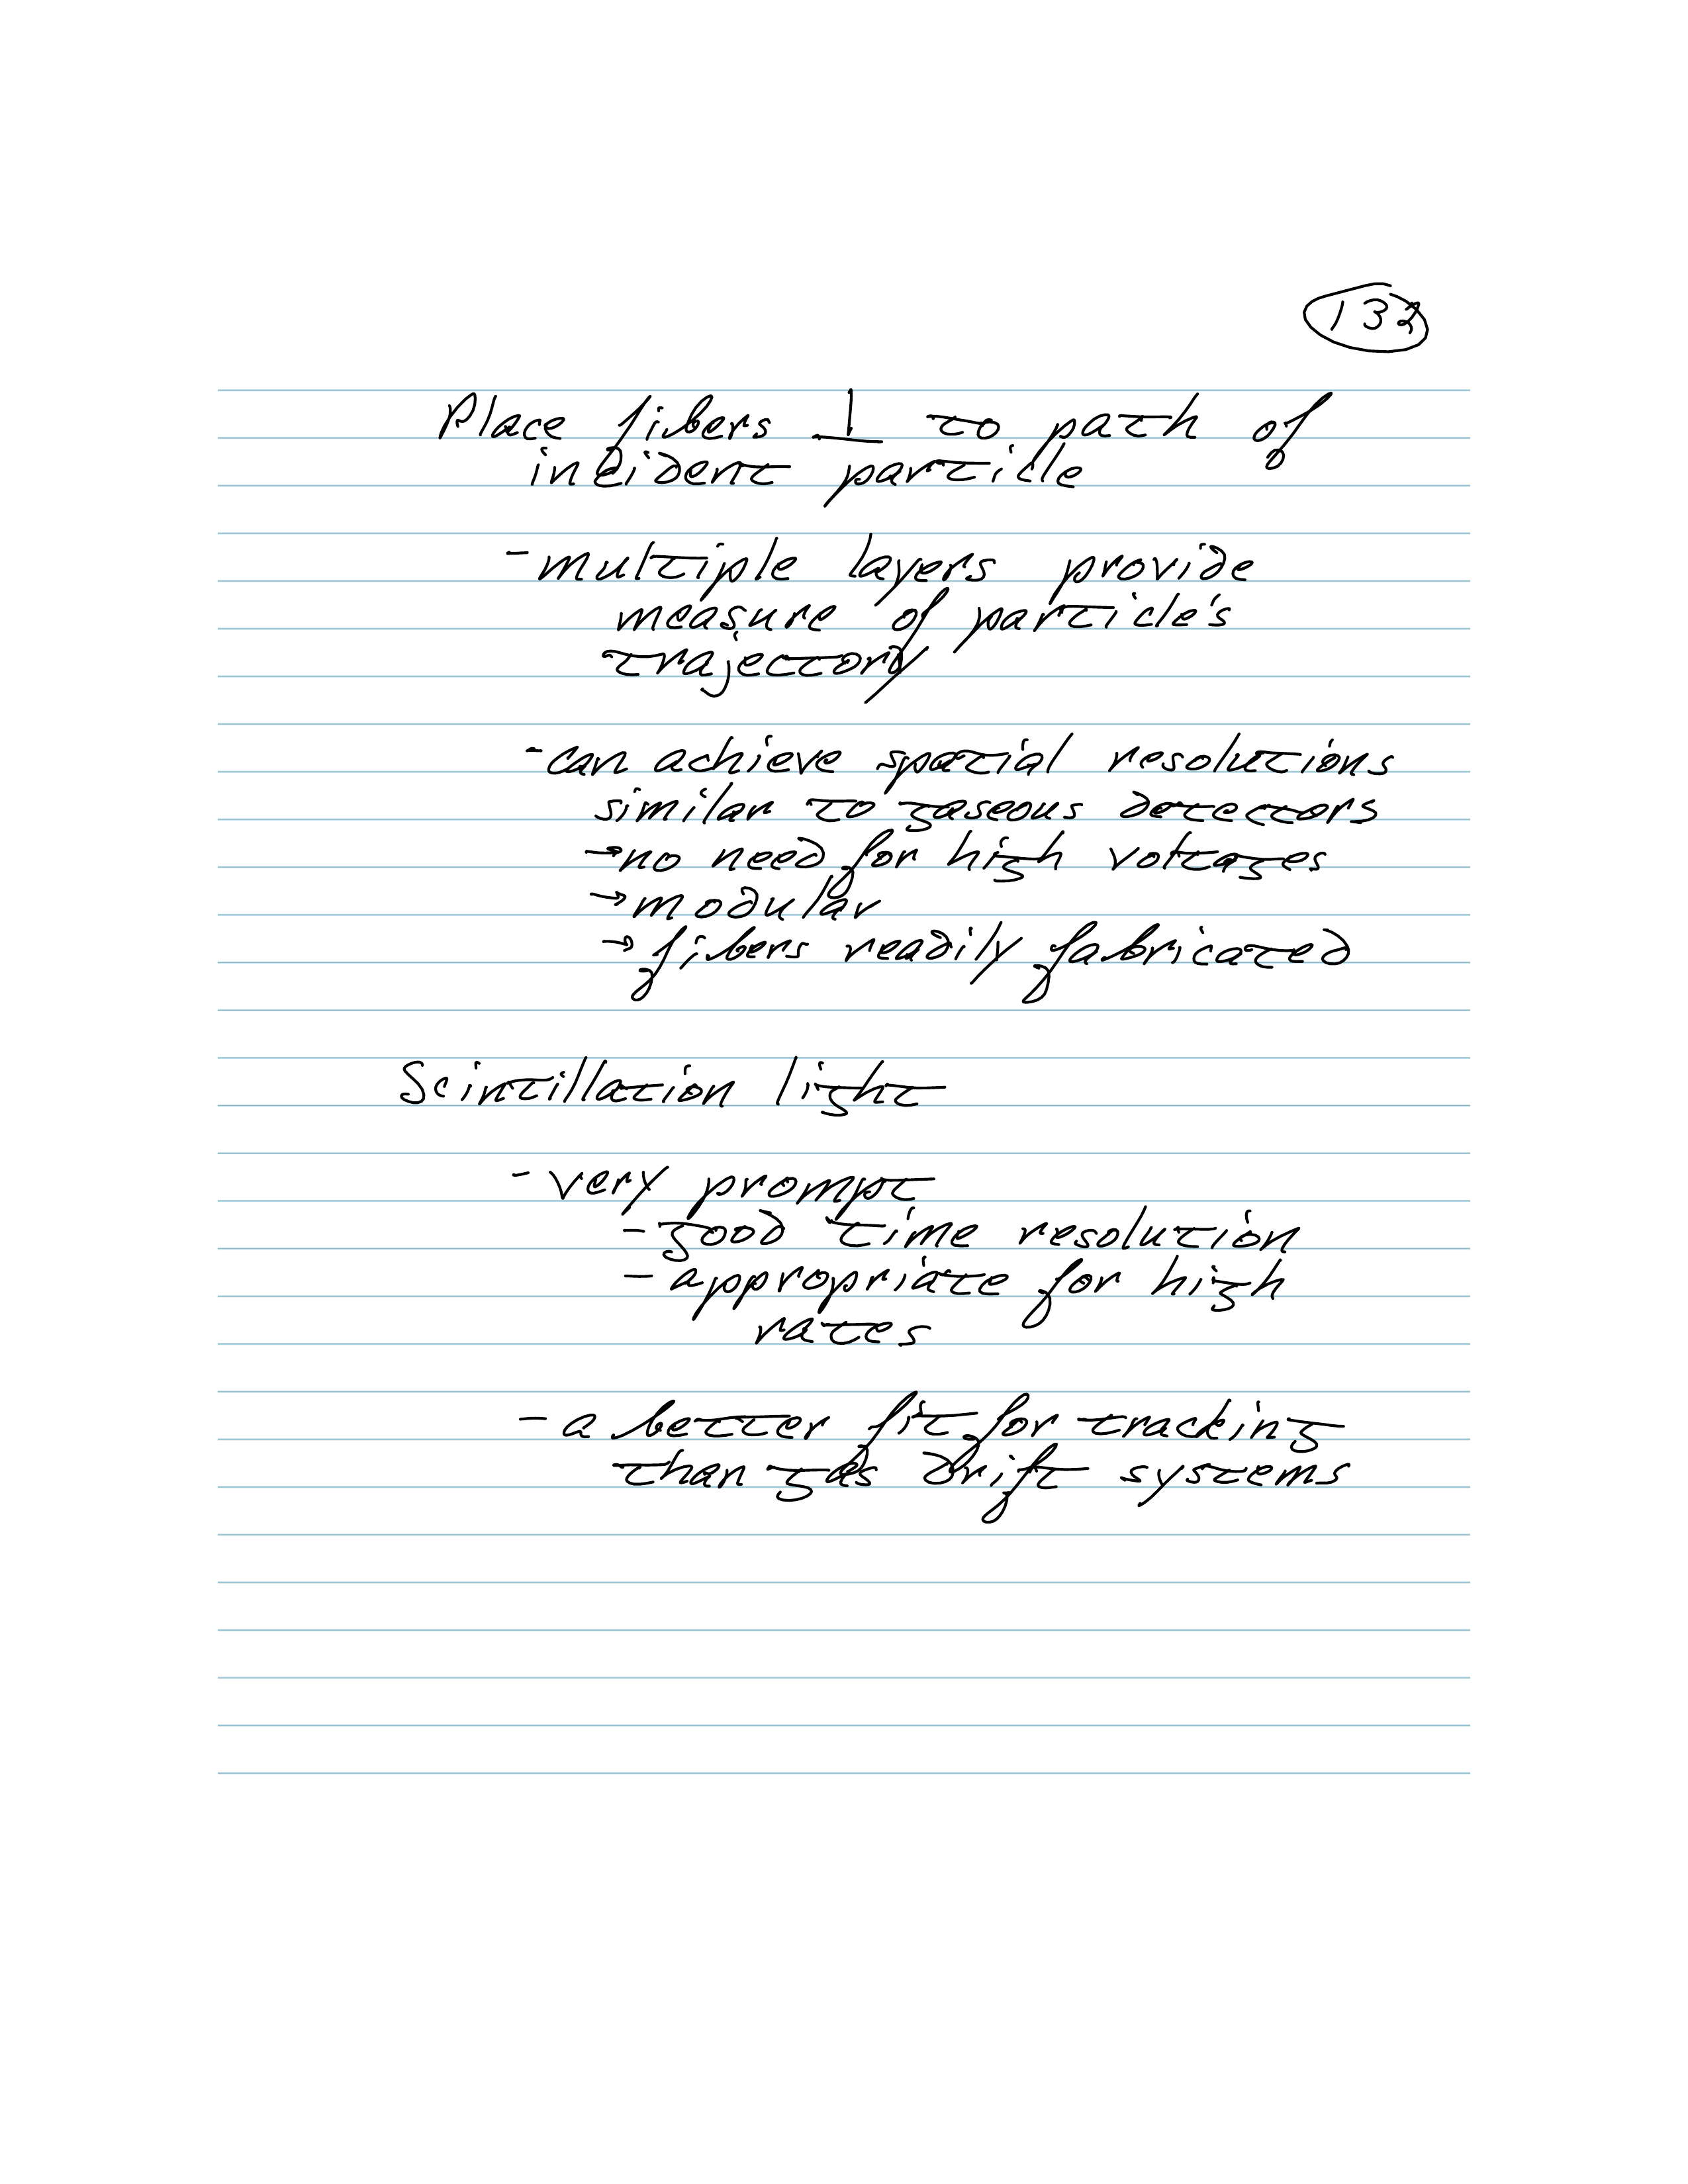 132
Place fibers ⊥ to path of
incident particle
- multiple layers provide
measure of particle's
trajectory
- can achieve spatial resolutions
similar to gaseous detectors
→ no need for high voltages
→ modular
→ fibers readily fabricated
Scintillation light
- very prompt
- good time resolution
- appropriate for high
rates
- a better fit for tracking
than gas drift systems